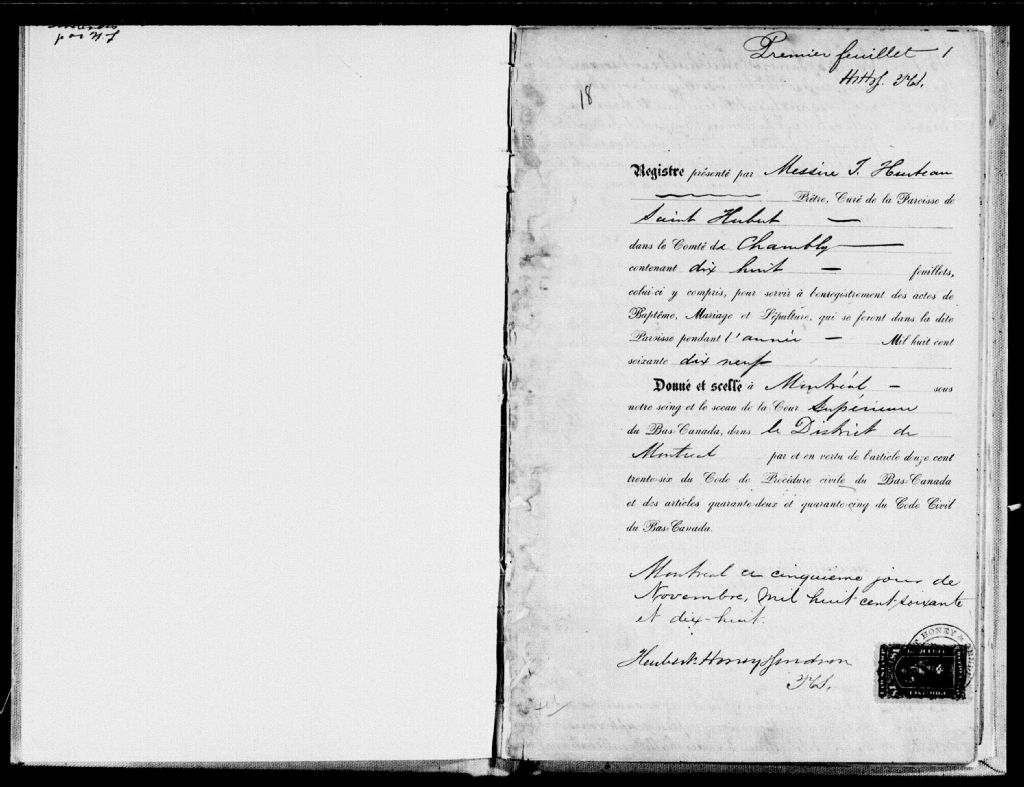 Premier feuillet 1
18
Registre présenté par Messire T. Hurteau
Prêtre, Curé de la Paroisse de
Saint Hubert —
dans le Comté de Chambly —
contenant dix huit — feuillets,
celui-ci y compris, pour servir à l'enregistrement des actes de
Baptême, Mariage et Sépulture, qui se feront dans la dite
Paroisse pendant l'année — Mil huit cent
soixante dix neuf
Donné et scellé à Montréal — sous
notre seing et le sceau de la Cour Supérieure
du Bas-Canada, dans le District de
Montreal par et en vertu de l'article douze cent
trente-six du Code de Procédure civile du Bas-Canada
et des articles quarante-deux et quarante-cinq du Code Civil
du Bas-Canada.
Montreal ce cinquième jour de
Novembre, mil huit cent soixante
et dix-huit.
Hubert, Honey & Gendron